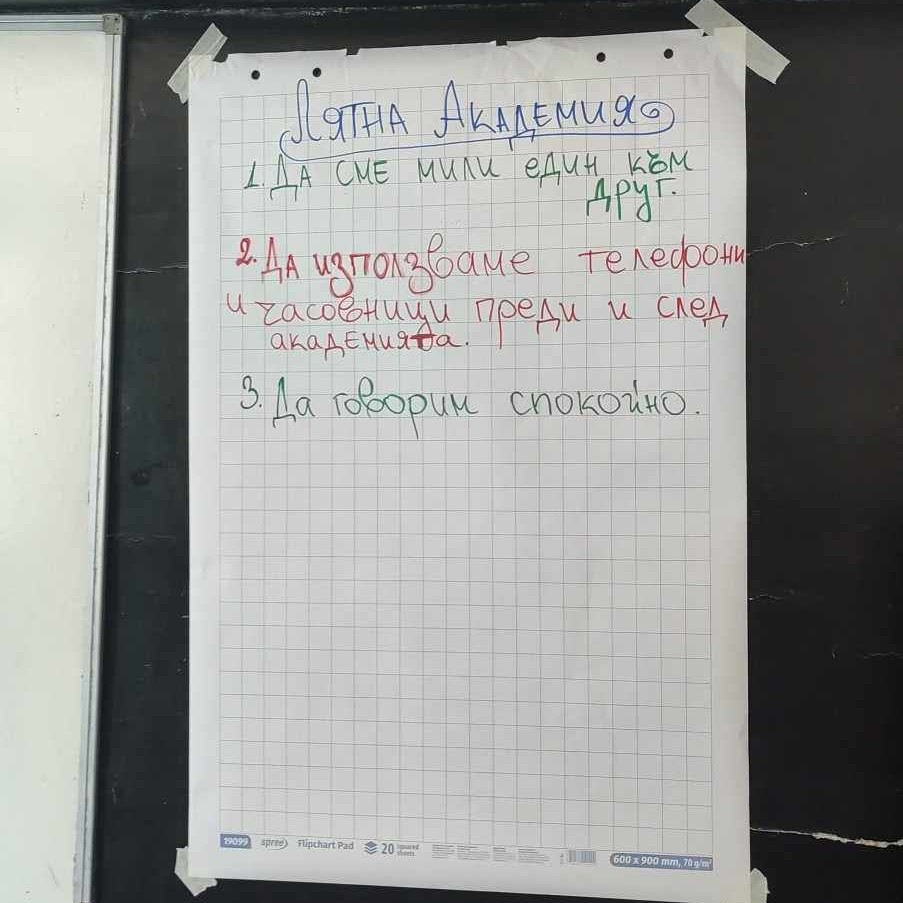 Лятна Академия
1. Да сме мили един към
друг.
2. Да използваме телефони
и часовници преди и след
академията.
3. Да говорим спокойно.
19099 spree Flipchart Pad 20 squared sheets 600 x 900 mm, 70 g/m²